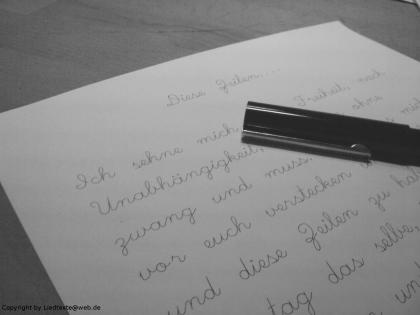 Diese Zeilen....
Ich sehne mich Freiheit, nach
Unabhängigkeit, ohne
zwang und muss.
vor euch verstecken
und diese Zeilen zu
tag das selbe,
Copyright by Liedtexte@web.de